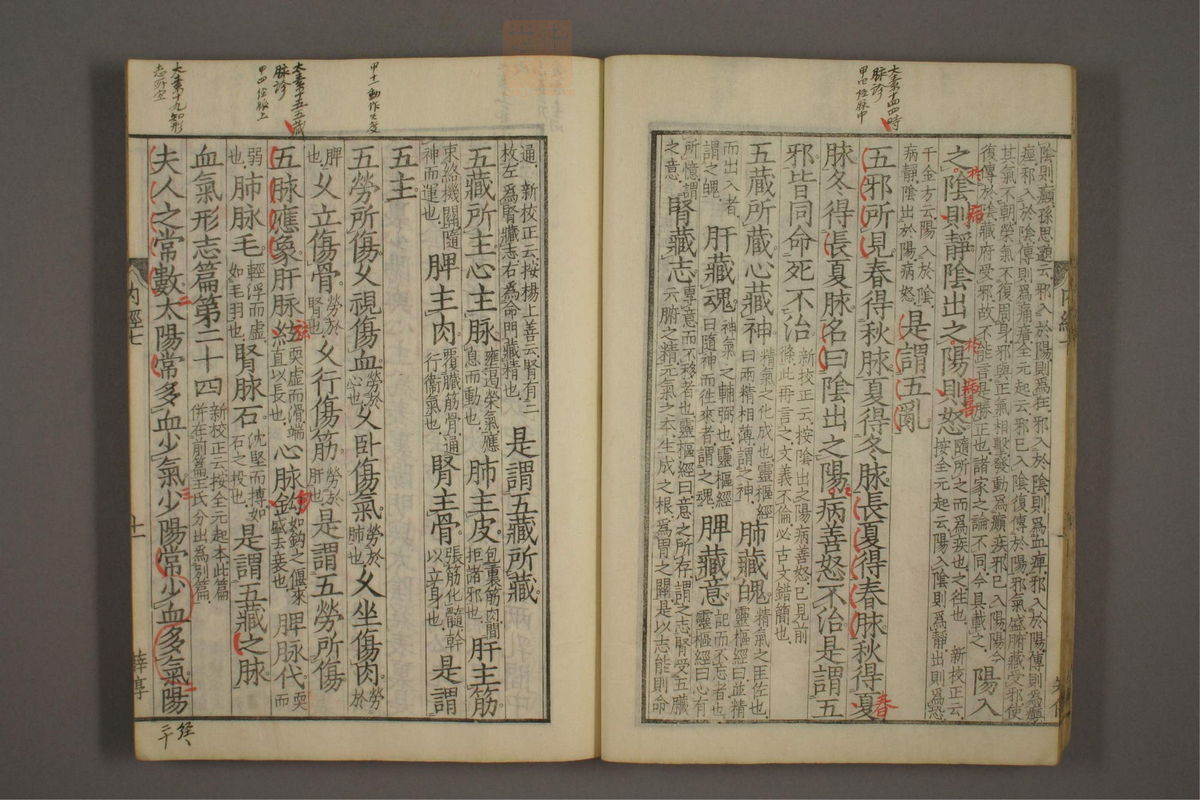 陰則癲孫思邈云邪入於陽則爲狂邪入於陰則爲血痺邪入於陽傳則爲癲
痙邪入於陰傳則爲痛瘖全元起云邪已入陰復傳於陽邪氣盛腑藏受邪使
其氣不朝榮氣不復周身邪與正氣相擊發動爲癲疾邪已入陽陽今
復傳於陰藏府受邪故不能言是勝正也諸家之論不同今具載之 陽入
之陰則靜陰出之陽則怒隨所之而爲疾也之往也 新校正云
按全元起云陽入陰則爲靜出則爲恐
千金方云陽入於陰
病靜陰出於陽病怒 是謂五亂
五邪所見春得秋脉夏得冬脉長夏得春脉秋得夏
脉冬得長夏脉名曰陰出之陽病善怒不治是謂五
邪皆同命死不治新校正云按陰出之陽病善怒已見前
條此再言之文義不倫必古文錯簡也
五藏所藏心藏神精氣之化成也靈樞經
曰兩精相薄謂之神 肺藏魄精氣之匡佐也
靈樞經曰並精
而出入者
謂之魄 肝藏魂神氣之輔弼也靈樞經
曰隨神而往來者謂之魂 脾藏意記而不忘者也
靈樞經曰心有
所憶謂
之意 腎藏志專意而不移者也靈樞經曰意之所存謂之志腎受五臟
六腑之精元氣之本生成之根爲胃之關是以志能則命
通 新校正云按楊上善云腎有二
枚左爲腎藏志右爲命門藏精也 是謂五藏所藏
五藏所主心主脉壅遏榮氣應
息而動也 肺主皮包裹筋肉間
拒諸邪也 肝主筋
束絡機關隨
神而運也 脾主肉覆臟筋骨通
行衛氣也 腎主骨張筋化髓幹
以立身也 是謂
五主
五勞所傷久視傷血勞於
心也 久卧傷氣勞於
肺也 久坐傷肉勞於
脾
也 久立傷骨勞於
腎也 久行傷筋勞於
肝也 是謂五勞所傷
五脉應象肝脉弦耎虛而滑端
直以長也 心脉鉤如鉤之偃來
盛去衰也 脾脉代耎而
弱
也 肺脉毛輕浮而虛
如毛羽也 腎脉石沈堅而摶如
石之投也 是謂五藏之脉
血氣形志篇第二十四新校正云按全元起本此篇
併在前篇王氏分出爲別篇
夫人之常數太陽常多血少氣少陽常少血多氣陽
内經七
十一
大素十四四時
脉診
甲四經脉中
甲十一動作失度
大素十五五藏
脉診
甲四經脉上
大素十九知形
志所宜
病
春